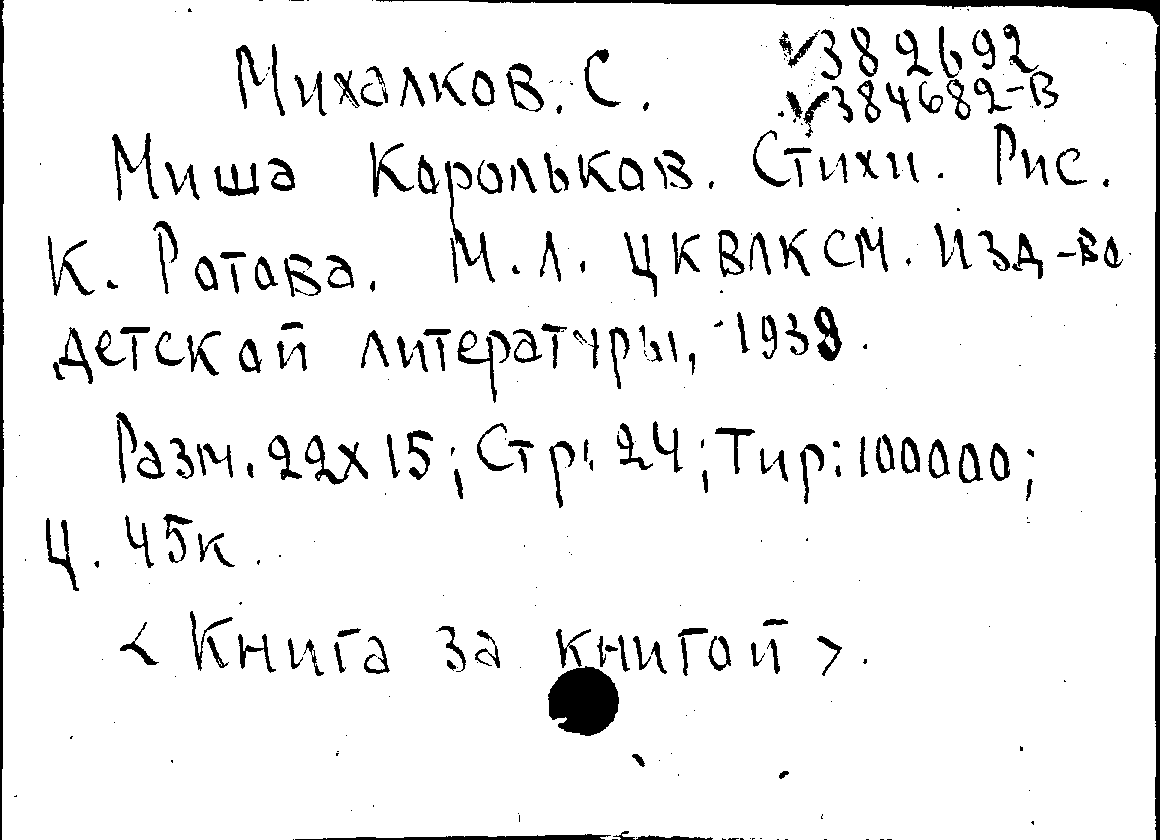 Михалков. С. 382692
384682-В
Миша Корольков. Стихи. Рис.
К. Ротова. М.Л. ЦКВЛКСМ. Изд-во
детской литературы, 1938.
Разм. 22х15; Стр. 24; Тир: 100000;
Ц. 45к.
<Книга за книгой>.